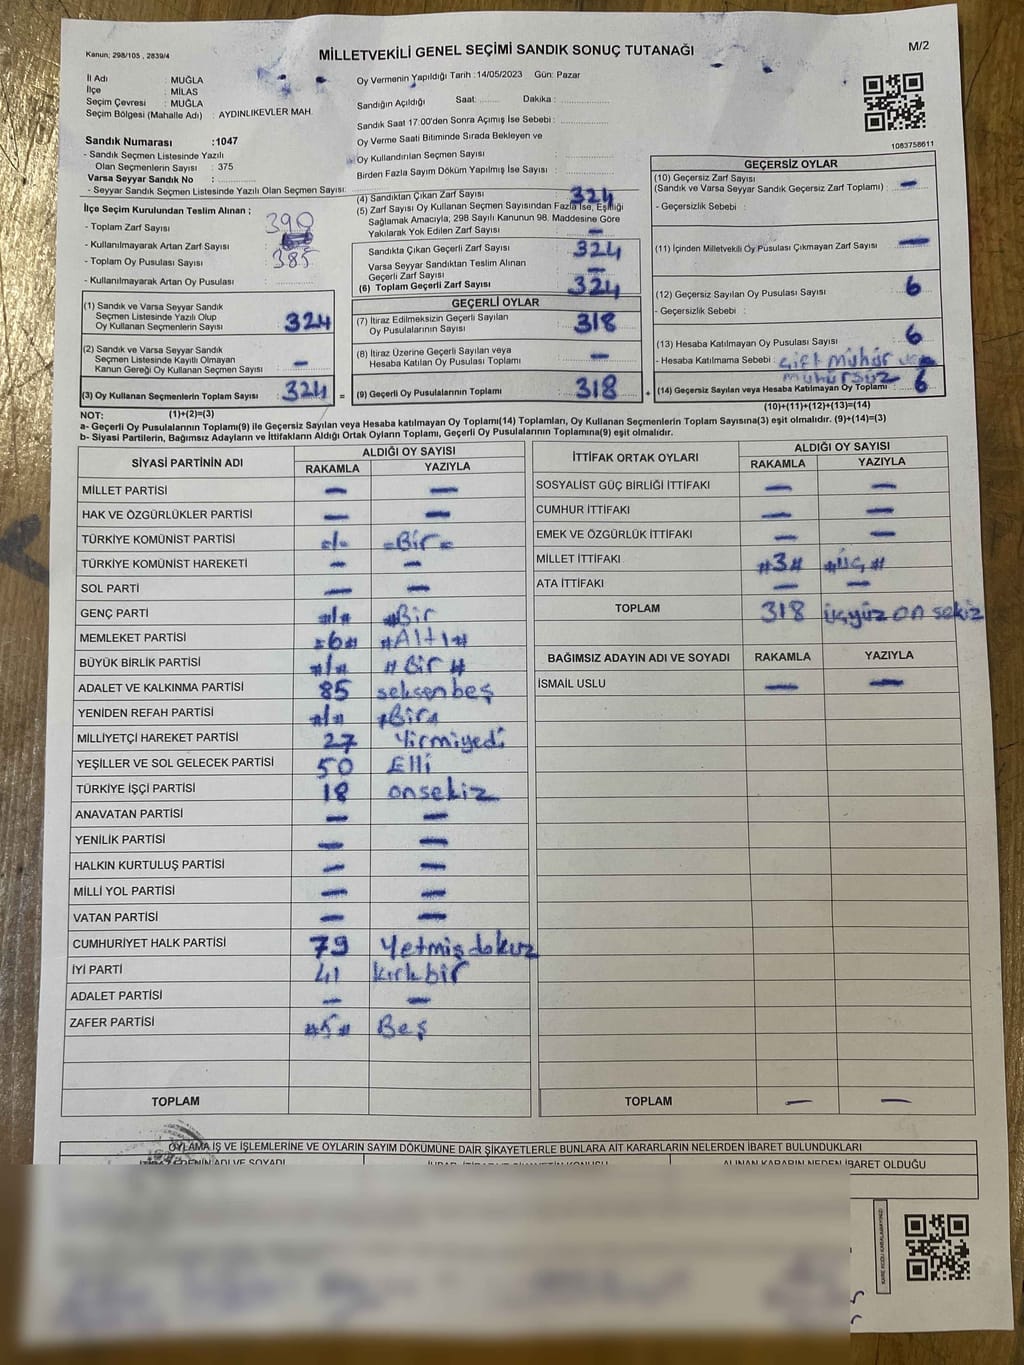 Kanun; 298/105 , 2839/4
MİLLETVEKİLİ GENEL SEÇİMİ SANDIK SONUÇ TUTANAĞI
M/2
İl Adı : MUĞLA
İlçe : MİLAS
Seçim Çevresi : MUĞLA
Seçim Bölgesi (Mahalle Adı) : AYDINLIKEVLER MAH.
Oy Vermenin Yapıldığı Tarih : 14/05/2023 Gün: Pazar
Sandığın Açıldığı Saat: ........ Dakika : ................
Sandık Saat 17:00'den Sonra Açımış İse Sebebi : ................
Oy Verme Saati Bitiminde Sırada Bekleyen ve
Oy Kullandırılan Seçmen Sayısı : ................
Birden Fazla Sayım Döküm Yapılmış İse Sayısı : ................
1083758611
Sandık Numarası :1047
- Sandık Seçmen Listesinde Yazılı
Olan Seçmenlerin Sayısı : 375
Varsa Seyyar Sandık No : ................
- Seyyar Sandık Seçmen Listesinde Yazılı Olan Seçmen Sayısı: ................
İlçe Seçim Kurulundan Teslim Alınan ;
- Toplam Zarf Sayısı : 390
- Kullanılmayarak Artan Zarf Sayısı :
- Toplam Oy Pusulası Sayısı : 385
- Kullanılmayarak Artan Oy Pusulası : ................
(1) Sandık ve Varsa Seyyar Sandık
Seçmen Listesinde Yazılı Olup
Oy Kullanan Seçmenlerin Sayısı : 324
(2) Sandık ve Varsa Seyyar Sandık
Seçmen Listesinde Kayıtlı Olmayan
Kanun Gereği Oy Kullanan Seçmen Sayısı : —
(3) Oy Kullanan Seçmenlerin Toplam Sayısı : 324 =
(4) Sandıktan Çıkan Zarf Sayısı : 324
(5) Zarf Sayısı Oy Kullanan Seçmen Sayısından Fazla İse, Eşitliği
Sağlamak Amacıyla; 298 Sayılı Kanunun 98. Maddesine Göre
Yakılarak Yok Edilen Zarf Sayısı : —
Sandıkta Çıkan Geçerli Zarf Sayısı : 324
Varsa Seyyar Sandıktan Teslim Alınan
Geçerli Zarf Sayısı : —
(6) Toplam Geçerli Zarf Sayısı : 324
GEÇERLİ OYLAR
(7) İtiraz Edilmeksizin Geçerli Sayılan
Oy Pusulalarının Sayısı : 318
(8) İtiraz Üzerine Geçerli Sayılan veya
Hesaba Katılan Oy Pusulası Sayısı : —
(9) Geçerli Oy Pusulalarının Toplamı : 318 +
GEÇERSİZ OYLAR
(10) Geçersiz Zarf Sayısı
(Sandık ve Varsa Seyyar Sandık Geçersiz Zarf Toplamı) : —
- Geçersizlik Sebebi :
(11) İçinden Milletvekili Oy Pusulası Çıkmayan Zarf Sayısı : —
(12) Geçersiz Sayılan Oy Pusulası Sayısı : 6
- Geçersizlik Sebebi :
(13) Hesaba Katılmayan Oy Pusulası Sayısı : 6
- Hesaba Katılmama Sebebi : Çift Mühür
Mühürsüz
(14) Geçersiz Sayılan veya Hesaba Katılmayan Oy Toplamı : 6
(10)+(11)+(12)+(13)=(14)
NOT: (1)+(2)=(3)
a- Geçerli Oy Pusulalarının Toplamı(9) ile Geçersiz Sayılan veya Hesaba katılmayan Oy Toplamı(14) Toplamları, Oy Kullanan Seçmenlerin Toplam Sayısına(3) eşit olmalıdır. (9)+(14)=(3)
b- Siyasi Partilerin, Bağımsız Adayların ve İttifakların Aldığı Ortak Oyların Toplamı, Geçerli Oy Pusulalarının Toplamına(9) eşit olmalıdır.
SİYASİ PARTİNİN ADI ALDIĞI OY SAYISI
RAKAMLA YAZIYLA
MİLLET PARTİSİ — —
HAK VE ÖZGÜRLÜKLER PARTİSİ — —
TÜRKİYE KOMÜNİST PARTİSİ =1= =Bir=
TÜRKİYE KOMÜNİST HAREKETİ — —
SOL PARTİ — —
GENÇ PARTİ #1# #Bir
MEMLEKET PARTİSİ =6# #Altı#
BÜYÜK BİRLİK PARTİSİ #1# #Bir#
ADALET VE KALKINMA PARTİSİ 85 seksenbeş
YENİDEN REFAH PARTİSİ #1# #Bir#
MİLLİYETÇİ HAREKET PARTİSİ 27 Yirmiyedi
YEŞİLLER VE SOL GELECEK PARTİSİ 50 Elli
TÜRKİYE İŞÇİ PARTİSİ 18 onsekiz
ANAVATAN PARTİSİ — —
YENİLİK PARTİSİ — —
HALKIN KURTULUŞ PARTİSİ — —
MİLLİ YOL PARTİSİ — —
VATAN PARTİSİ — —
CUMHURİYET HALK PARTİSİ 79 Yetmişdokuz
İYİ PARTİ 41 kırkbir
ADALET PARTİSİ — —
ZAFER PARTİSİ #5# Beş
TOPLAM
İTTİFAK ORTAK OYLARI ALDIĞI OY SAYISI
RAKAMLA YAZIYLA
SOSYALİST GÜÇ BİRLİĞİ İTTİFAKI — —
CUMHUR İTTİFAKI — —
EMEK VE ÖZGÜRLÜK İTTİFAKI — —
MİLLET İTTİFAKI #3# #üç#
ATA İTTİFAKI — —
TOPLAM 318 üçyüz on sekiz
BAĞIMSIZ ADAYIN ADI VE SOYADI RAKAMLA YAZIYLA
İSMAİL USLU — —
TOPLAM — —
OYLAMA İŞ VE İŞLEMLERİNE VE OYLARIN SAYIM DÖKÜMÜNE DAİR ŞİKAYETLERLE BUNLARA AİT KARARLARIN NELERDEN İBARET BULUNDUKLARI
ADI VE SOYADI
ALINAN KARARIN NEDEN İBARET OLDUĞU
KARE KODU KARALAMAYINIZ!